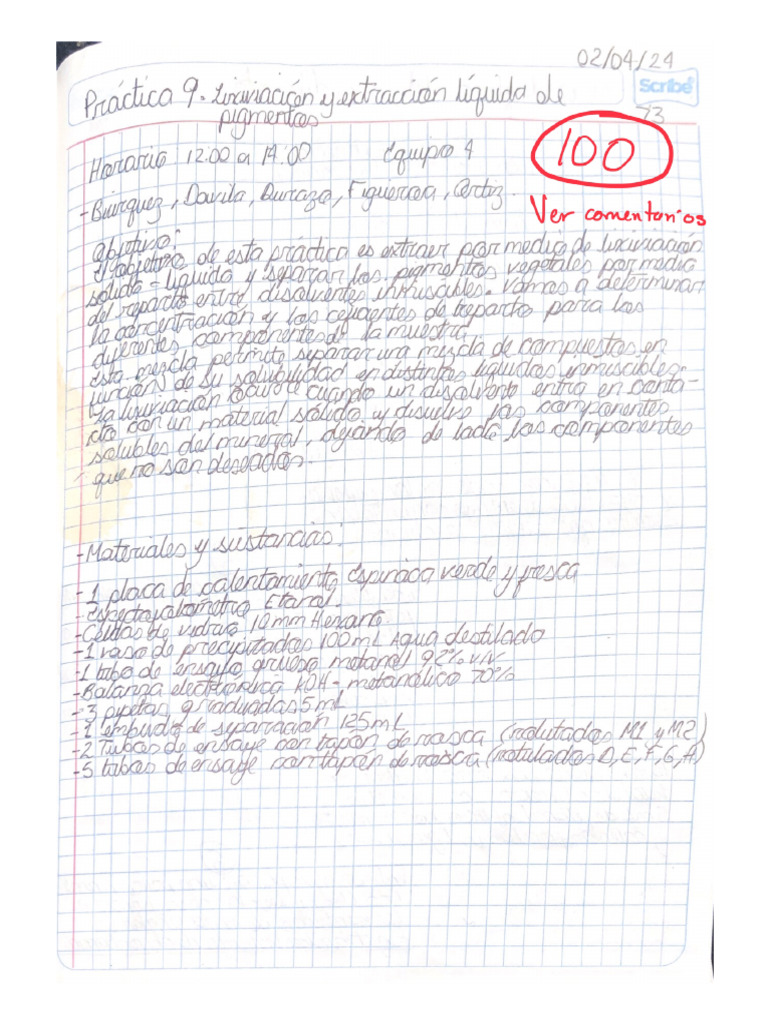 02/04/24
Scribe
Práctica 9. Lixiviación y extracción líquida de
73
pigmentos
100
Horario 12:00 a 14:00 Equipo 4
- Búrquez, Davila, Durazo, Figueroa,
Ver comentarios
Objetivo:
El objetivo de esta práctica es extraer por medio de lixiviación
solido-liquido y separar los pigmentos vegetales por medio
del reparto entre disolventes inmisibles. Vamos a determinar
la concentración y los de reparto para los
diferentes componentes de la muestra
Esta mezcla permite separar una mezcla de compuestos en
función de su solubilidad en distintos liquidos inmiscibles.
- la lixiviación cuando un disolvente entra en conta-
cto con un material sólido y disuelve los componentes
solubles del mineral, dejando de lado los componentes
que no son deseados.
- Materiales y sustancias:
- 1 placa de calentamiento Espinaca verde y fresca
- Etanol.
- Celdas de vidrio 10mm Hexano
- 1 vaso de precipitados 100mL Agua destilado
- 1 tubo de ensayo grueso metanol 92% v/v
- Balanza electrónica KOH-metanólico 70%
- 3 pipetas graduadas 5mL
- 1 embudo de separación 125mL
- 2 Tubos de ensaye con tapón de rosca (rolutados M1 y M2)
- 5 tubos de ensaye con tapón de rosca (rotulados D, E, F, G, A)